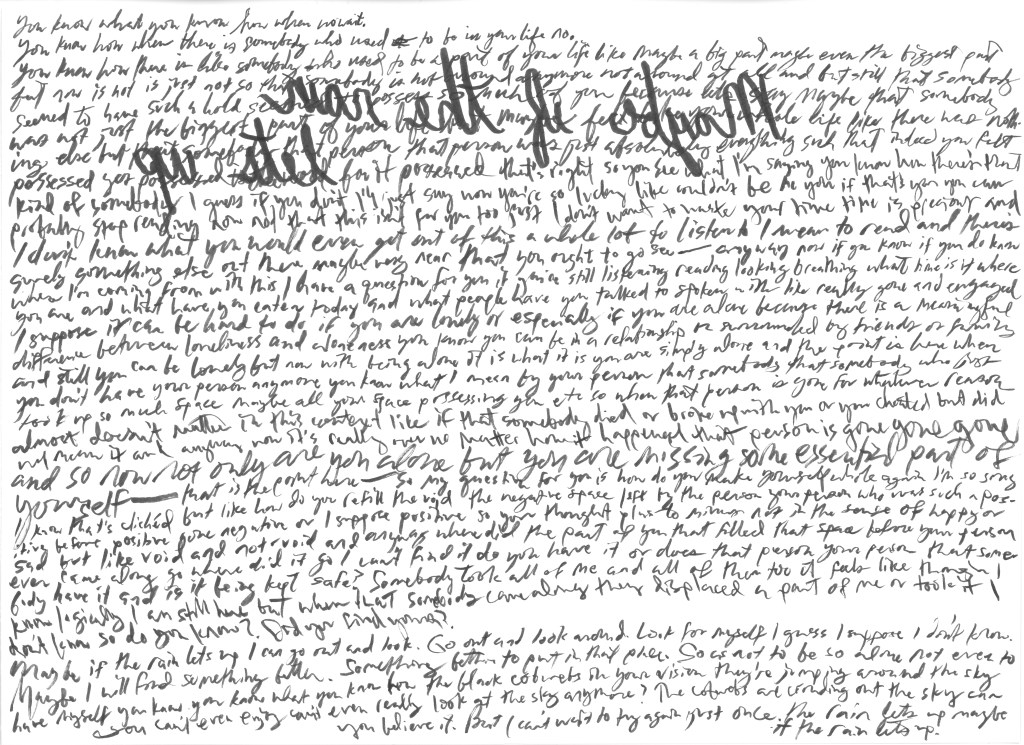 You know what you know how when no wait.
You know how when there is somebody who used to be in your life no.
You know how there is like somebody who used to be a part of your life like maybe a big part maybe even the biggest part
but now is not is just not so that somebody is not around anymore not around at all and but still that somebody
seemed to have such a hold possess so much of you because like say maybe that somebody
was not just the biggest part of your life like there was noth-
ing else but that somebody that person that person was just absolutely everything such that indeed you felt
possessed got possessed for it possessed that's right so you see what I'm saying you know how there's that
kind of somebody I guess if you don't I'll just say now you're so lucky like couldn't be me you if that's you you can
probably stop reading now not that this isn't for you too just I don't want to waste your time time is precious and
I don't know what you would even get out of this a whole lot to listen I mean to read and there's
surely something else out there maybe very near that you ought to go see — anyway now if you know if you do know
where I'm coming from with this I have a question for you if you're still listening reading looking breathing what time is it where
you are and what have you eaten today and what people have you talked to spoken with like really gone and engaged
I suppose it can be hard to do if you are lonely or especially if you are alone because there is a meaningful
difference between loneliness and aloneness you know you can be in a relationship or surrounded by friends or family
and still you can be lonely but now with being alone it is what it is you are simply alone and the point is here when
you don't have your person anymore you know what I mean by your person that somebody that somebody who just
took up so much space maybe all your space possessing you etc so when that person is gone for whatever reason
almost doesn't matter in this context like if that somebody died or broke up with you or you cheated but did
not mean it and anyway now it's really over no matter how it happened that person is gone gone gone
and so now not only are you alone but you are missing some essential part of
yourself — that is the point here — so my question for you is how do you make yourself whole again I'm so sorry
I know that's clichéd but like how do you refill the void the negative space left by the person your person who was such a pos-
itive before positive gone negative or I suppose positive so your thought plus to minus not in the sense of happy or
sad but like void and not void and anyway where did the part of you that filled that space before your person
ever came along go where did it go I can't find it do you have it or does that person your person that some-
body have it and is it being kept safe? Somebody took all of me and all of them too it feels like though I
know logically I am still here but when that somebody came along they displaced a part of me or took it I
don't know so do you know? Did you find yours?
Maybe if the rain lets up I can go out and look. Go out and look around. Look for myself I guess I suppose I don't know.
Maybe I will find something better. Something better to put in that place. So as not to be so alone not even to
have myself you know you know what you know how the black cobwebs on your vision they're jumping around the sky
you can't even enjoy can't even really look at the sky anymore? The cobwebs are crowding out the sky can
you believe it. But I can't wait to try again just once. The rain lets up maybe
if the rain lets up.
Maybe if the rain
lets up